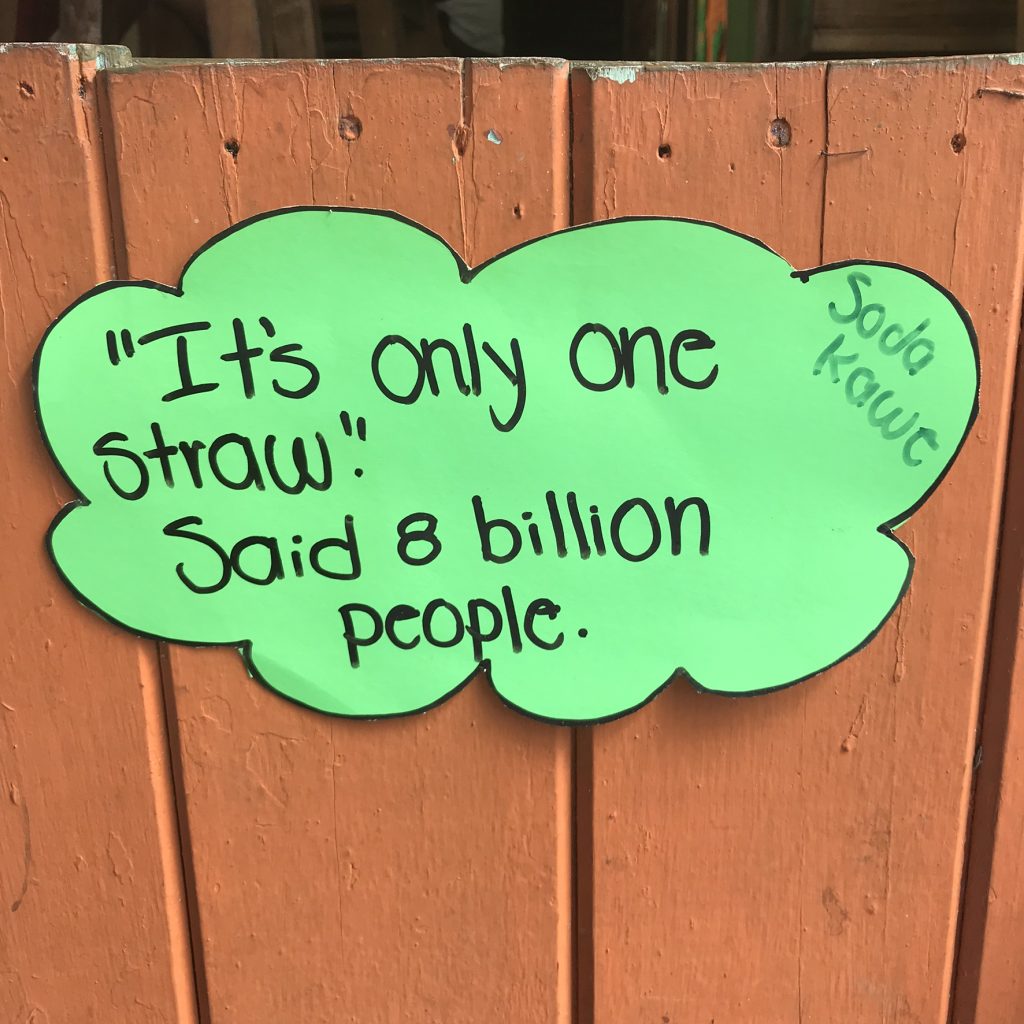 "It's only one
straw".
Said 8 billion
people.
Soda
Kawe